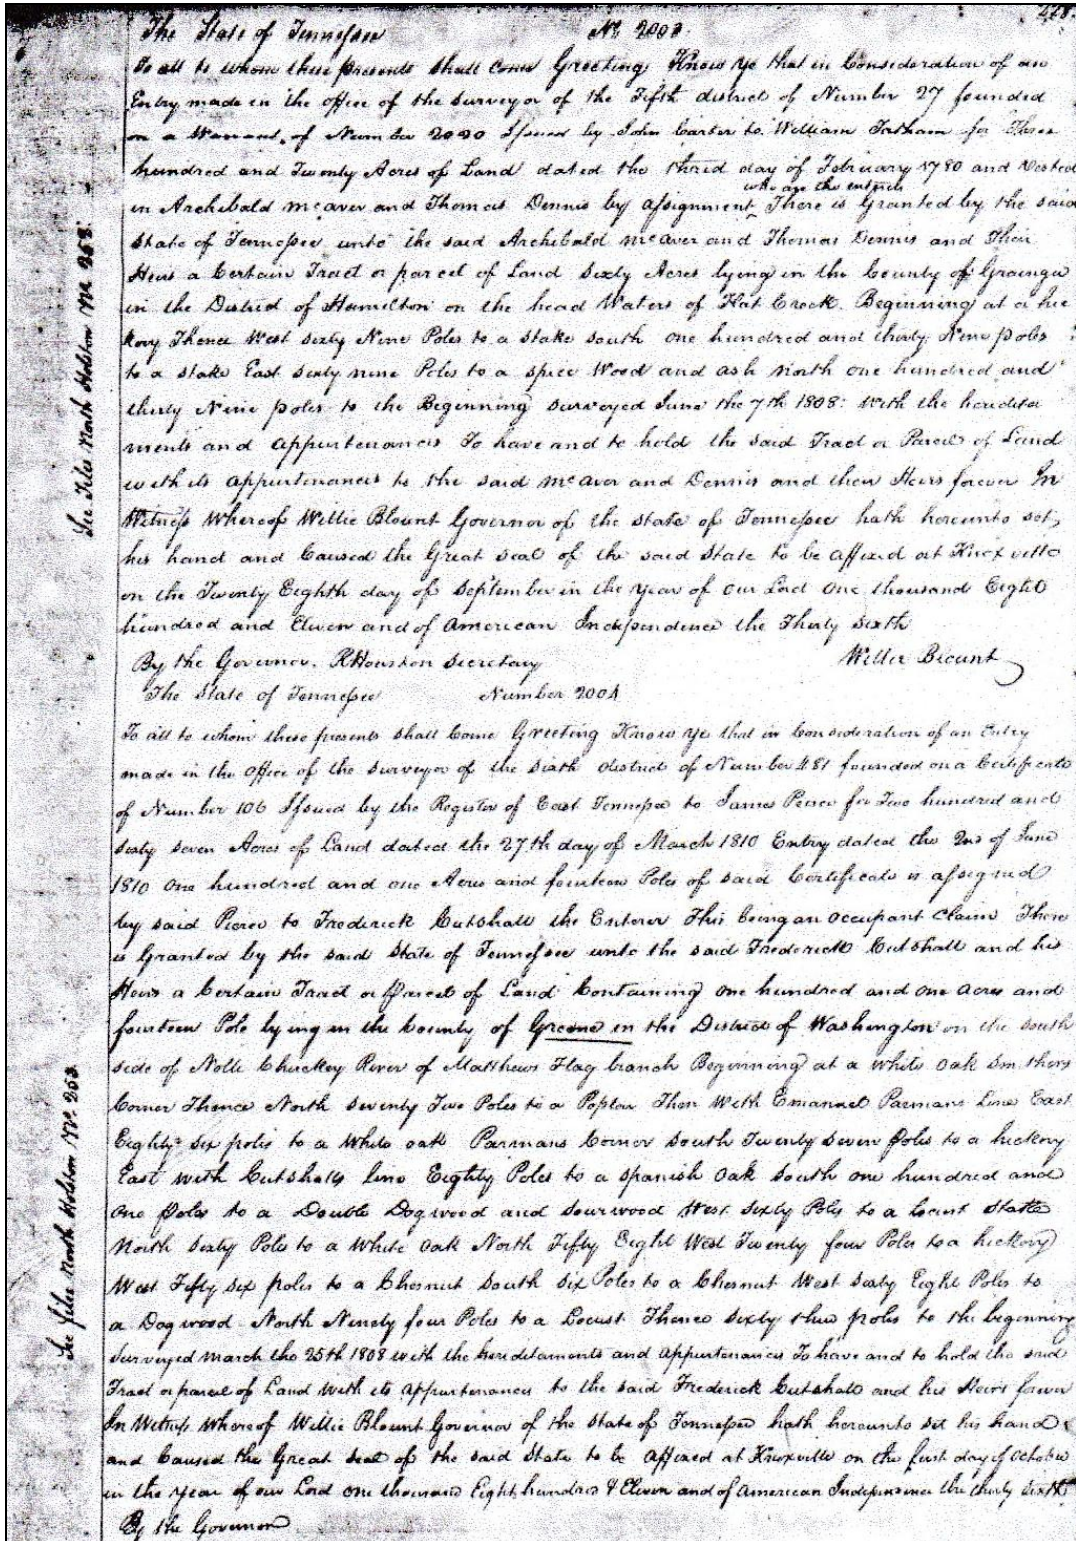 428.
The State of Tennessee No. 2003.
To all to whom these presents shall come Greeting Know ye that in Consideration of an
Entry made in the office of the surveyor of the Fifth district of Number 27 founded
on a Warrant of Number 2020 Issued by John Carter to William Tatham for Three
hundred and Twenty Acres of Land dated the third day of February 1780 and Vested
who are the enterers
in Archibald McAver and Thomas Dennis by assignment There is Granted by the said
State of Tennessee unto the said Archibald McAver and Thomas Dennis and Their
Heirs a Certain Tract or parcel of Land Sixty Acres lying in the County of Grainger
in the District of Hamilton on the head Waters of Flat Creek. Beginning at a hic
kory Thence West sixty Nine Poles to a stake south one hundred and thirty Nine poles
to a stake East sixty nine Poles to a spice Wood and ash North one hundred and
thirty Nine poles to the Beginning surveyed June the 7th 1808: With the heredita
ments and appurtenances To have and to hold the said Tract or Parcel of Land
with its appurtenances to the said McAver and Dennis and their Heirs forever In
Witness Whereof Willie Blount Governor of the state of Tennessee hath hereunto set
his hand and Caused the Great seal of the said State to be affixed at Knoxville
on the Twenty Eighth day of September in the year of our Lord One thousand Eight
hundred and Eleven and of American Independence the Thirty Sixth
By the Governor. R Houston Secretary Willie Blount
See File North Holston No 268.
The State of Tennessee Number 2004
To all to whom these presents shall Come Greeting Know ye that in Consideration of an Entry
made in the office of the surveyor of the sixth district of Number 481 founded on a Certificate
of Number 106 Issued by the Register of East Tennessee to James Peirce for Two hundred and
sixty seven Acres of Land dated the 27th day of March 1810 Entry dated the 2nd of June
1810 One hundred and one Acres and fourteen Poles of said Certificate is assigned
by said Pierce to Frederick Cutshall the Enterer This being an occupant claim There
is Granted by the said State of Tennessee unto the said Frederick Cutshall and his
Heirs a Certain Tract or Parcel of Land Containing one hundred and one acres and
fourteen Pole lying in the County of Greene in the District of Washington on the south
side of Nolle Chuckey River of Matthews Flag branch Beginning at a White Oak Smithers
Corner Thence North seventy Two Poles to a Poplar Then With Emanuel Parmans Line East
Eighty six poles to a White oak Parmans Corner South Twenty seven Poles to a hickory
East with Cutshalls line Eighty Poles to a spanish Oak south one hundred and
One Poles to a Double Dogwood and sourwood West sixty Poles to a Locust Stake
North sixty Poles to a White Oak North Fifty Eight West Twenty four Poles to a hickory
West Fifty six poles to a Chesnut south six Poles to a Chesnut West sixty Eight Poles to
a Dogwood North Ninety four Poles to a Locust Thence sixty three poles to the beginning
Surveyed March the 25th 1808 with the hereditaments and appurtenances To have and to hold the said
Tract or parcel of Land With its appurtenances to the said Frederick Cutshall and his Heirs forever
In Witness Whereof Willie Blount Governor of the state of Tennessee hath hereunto set his hand
and Caused the Great seal of the said State to be affixed at Knoxville on the first day of October
in the year of our Lord one thousand Eight hundred & Eleven and of American Independence the thirty sixth
By the Governor
See File North Holston No. 253.